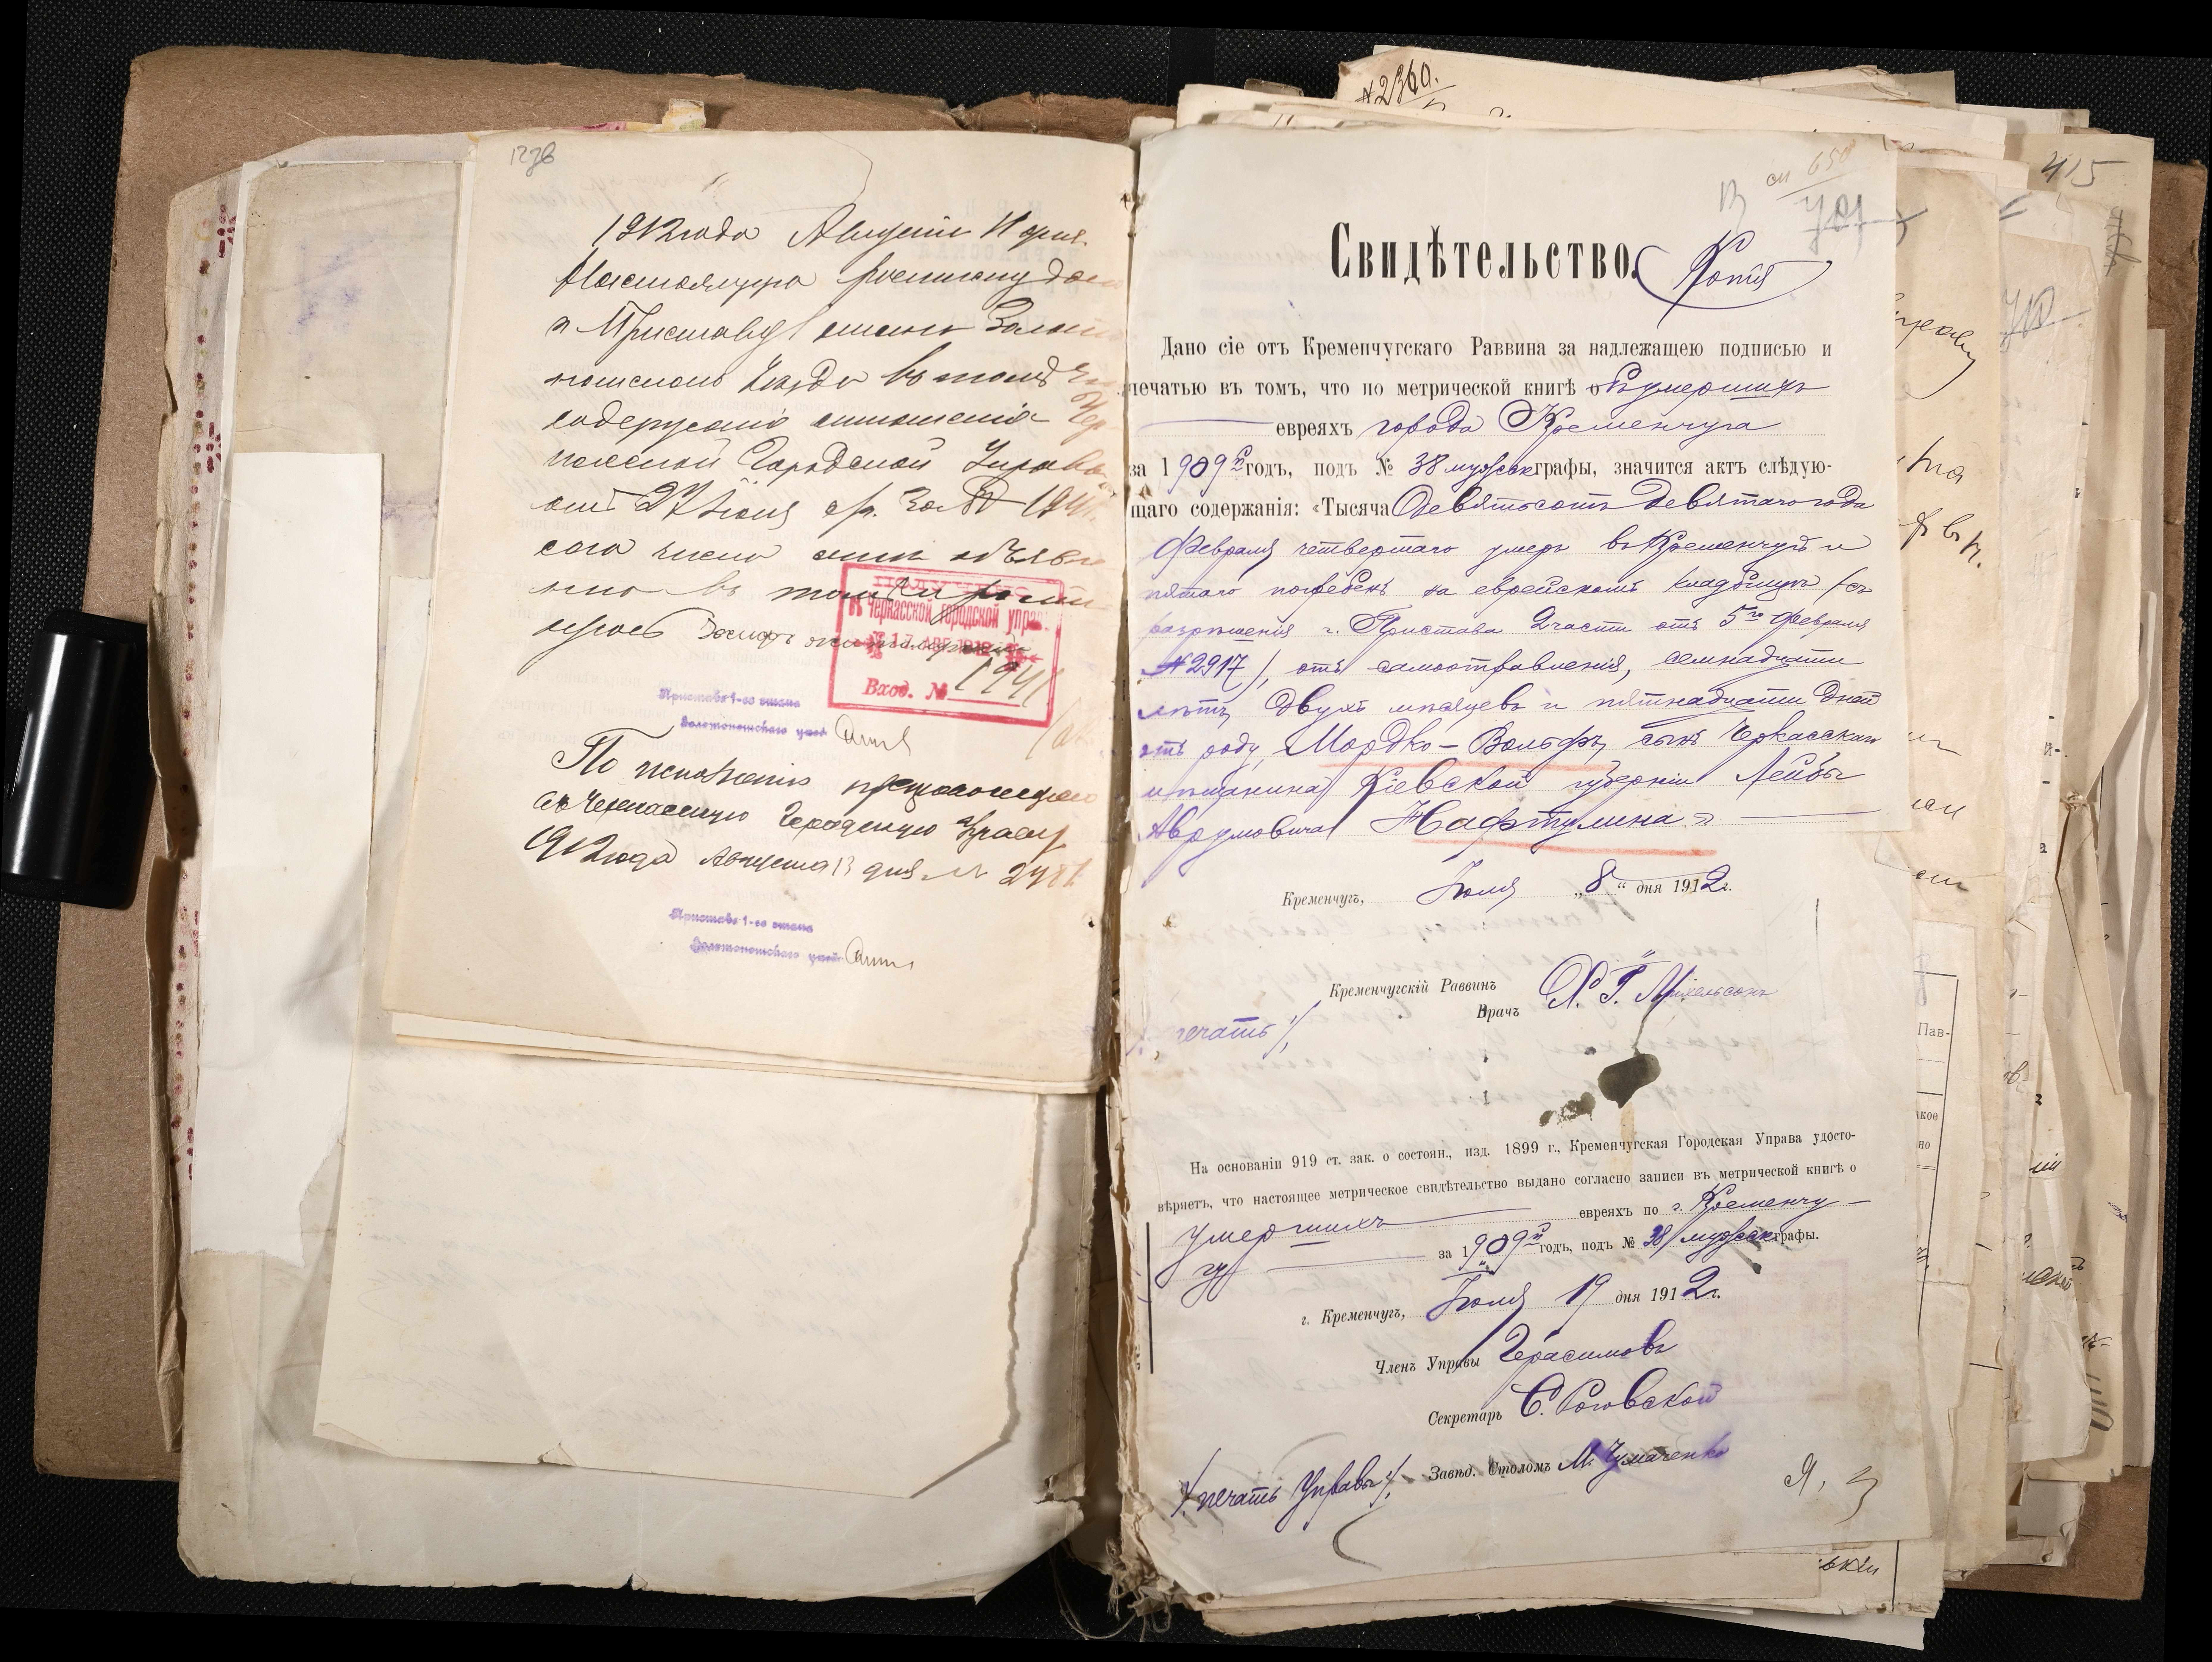 1912 года Августа 11 дня.
Настоящую росписку даю
г. Приставу 1 стана Золото
ношскаго Уезда въ томъ
содержаніе отношенія Чер
касской Городской Управы
отъ 27 Іюня с/г. за №
сего числа мнѣ объявле
но въ томъ и росписы
ПОЛУЧЕНО
въ Черкасской городской управѣ
17 АВГ 1912
Вход. №
Приставъ 1-го стана
Золотоношскаго уѣзда
По исполненіи
въ Черкасскую Городскую Управу
1912 года Августа 13 дня №
Приставъ 1-го стана
Золотоношскаго уѣзда
№2360.
415
см 650
Свидѣтельство.
Копія
Дано сіе отъ Кременчугскаго Раввина за надлежащею подписью и
печатью въ томъ, что по метрической книгѣ о умершихъ
евреяхъ города Кременчуга
за 1909й годъ, подъ № 38 мужск графы, значится актъ слѣдую-
щаго содержанія: «Тысяча Девятьсотъ девятаго года
Февраля четвертаго умеръ въ Кременчугѣ и
пятаго погребенъ на еврейскомъ кладбищѣ (съ
разрѣшенія г. Пристава 2 части отъ 5го Февраля
№2917), отъ самоотравленія, семнадцати
лѣтъ, двухъ мѣсяцевъ и пятнадцати дней
отъ роду, Мордко-Вольфъ, сынъ Черкасскаго
мѣщанина Кіевской губерніи Лейбы
Аврумовича Нафтулина»
Кременчугъ, Іюля „8“ дня 1912 г.
Кременчугскій Раввинъ
Врачъ Х. Г. Михельсонъ
печать
На основаніи 919 ст. зак. о состоян., изд. 1899 г., Кременчугская Городская Управа удосто-
вѣряетъ, что настоящее метрическое свидѣтельство выдано согласно записи въ метрической книгѣ о
умершихъ евреяхъ по г. Кременчу-
гу за 1909й годъ, подъ № 38 мужск графы.
г. Кременчугъ, Іюля 19 дня 1912 г.
Членъ Управы Герасимовъ
Секретарь С. Роговской
Завѣд. Столомъ М. Чумаченко
печать Управы
Пав-